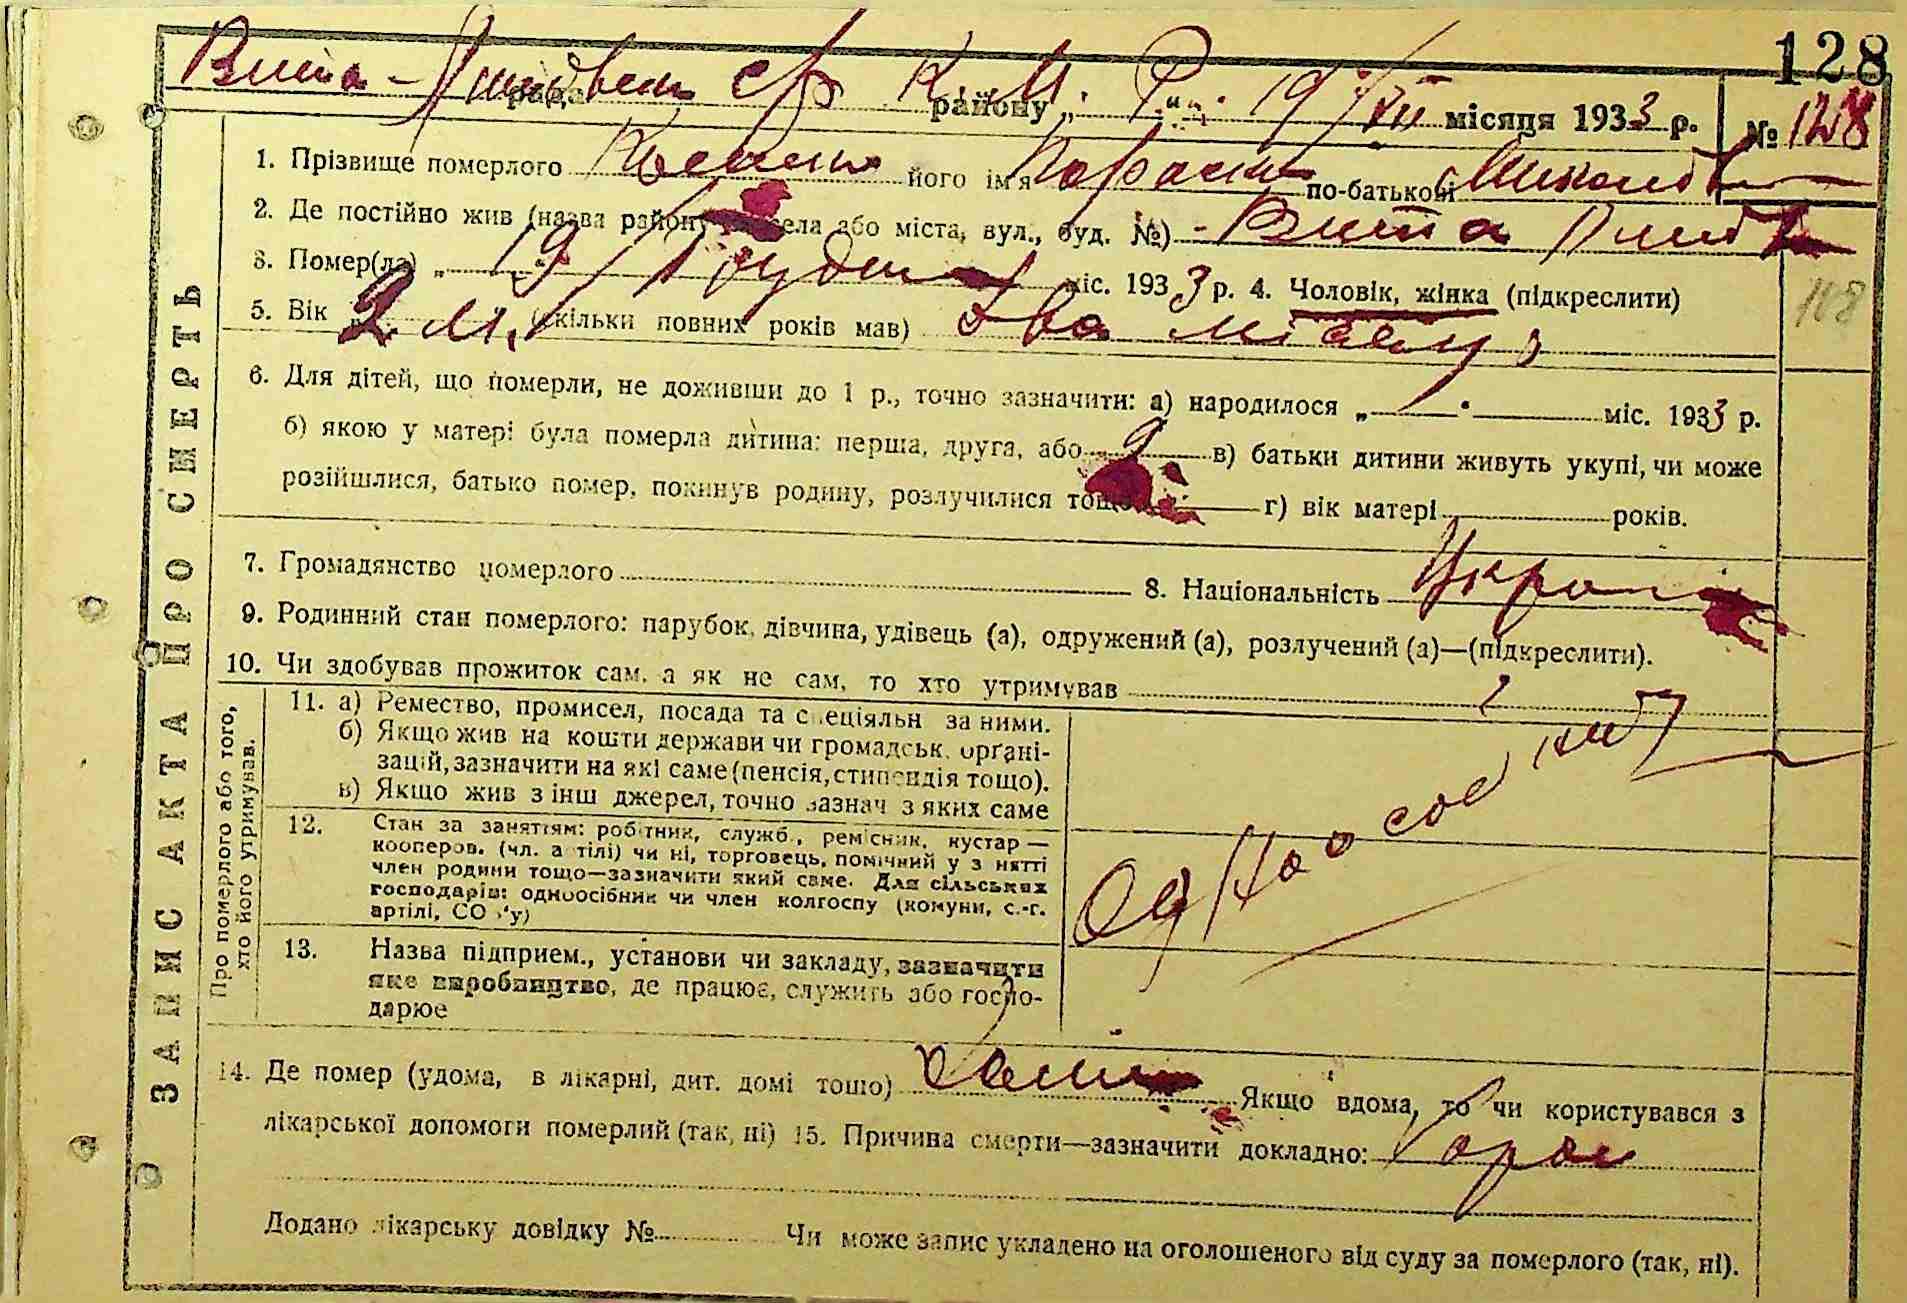 128
Вита - Поштовська с/р К. М. Р. 19/XII
рада району „ “ місяця 1933 р. № 128
1. Прізвище померлого його ім'я по-батькові
2. Де постійно жив (назва району села або міста, вул., буд. №) Вита Пошт
3. Помер(ла) „ 19 “ Грудня міс. 1933 р. 4. Чоловік, жінка (підкреслити)
108
5. Вік 2 м. (скільки повних років мав) два місяці
6. Для дітей, що померли, не доживши до 1 р., точно зазначити: а) народилося „ “ міс. 1933 р.
б) якою у матері була померла дитина: перша, друга, або 2 в) батьки дитини живуть укупі, чи може
розійшлися, батько помер, покинув родину, розлучилися тощо г) вік матері років.
7. Громадянство померлого 8. Національність Украї
9. Родинний стан померлого: парубок, дівчина, удівець (а), одружений (а), розлучений (а)—(підкреслити).
10. Чи здобував прожиток сам, а як не сам, то хто утримував
11. а) Ремество, промисел, посада та спеціяльн за ними.
б) Якщо жив на кошти держави чи громадськ. орґані-
зацій, зазначити на які саме (пенсія, стипендія тощо).
в) Якщо жив з інш джерел, точно зазнач з яких саме
12. Стан за заняттям: робітник, служб., ремісник, кустар —
кооперов. (чл. артілі) чи ні, торговець, помічний у занятті
член родини тощо—зазначити який саме. Для сільських
господарів: одноосібник чи член колгоспу (комуни, с.-г.
артілі, СОЗ'у)
13. Назва підприєм., установи чи закладу, зазначити
яке виробництво, де працює, служить або госпо-
дарює
Про померлого або того,
хто його утримував.
ЗАПИС АКТА ПРО СМЕРТЬ
14. Де помер (удома, в лікарні, дит. домі тощо) Якщо вдома, то чи користувався з
лікарської допомоги померлий (так, ні) 15. Причина смерти—зазначити докладно:
Додано лікарську довідку № Чи може запис укладено на оголошеного від суду за померлого (так, ні).